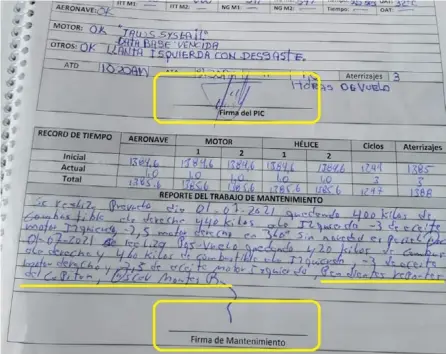 ITT M1: ITT M2: NG M1: NG M2: Tiempo: OAT: 32°C
AERONAVE: OK
MOTOR: OK "TAWS SYS FAIL"
DATA BASE VENCIDA
OTROS: OK LLANTA IZQUIERDA CON DESGASTE.
ATD 10:20AM HORAS DE VUELO Aterrizajes 3
Firma del PIC
RECORD DE TIEMPO AERONAVE MOTOR HÉLICE Ciclos Aterrizajes
1 2 1 2
Inicial 1384,6 1384,6 1384,6 1384,6 1384,6 1244 1385
Actual 1.0 1.0 1.0 1.0 1.0 3 3
Total 1385.6 1385.6 1385.6 1385.6 1385.6 1247 1388
REPORTE DEL TRABAJO DE MANTENIMIENTO
Se realiza Prevuelo dia 01-07-2021 quedando 400 kilos de
combustible ala derecha 440 kilos ala Izquierda -3 de aceite
motor Izquierdo -2,5 motor derecho 360° sin novedad
01-07-2021 se realiza Pos-vuelo quedando 420 kilos de combus
ala derecha y 460 kilos de combustible ala Izquierda, -3 de aceite
motor derecho y -2,5 de aceite motor Izquierdo, Pendientes reportes
del Capitan, Oscar Montes R.
Firma de Mantenimiento